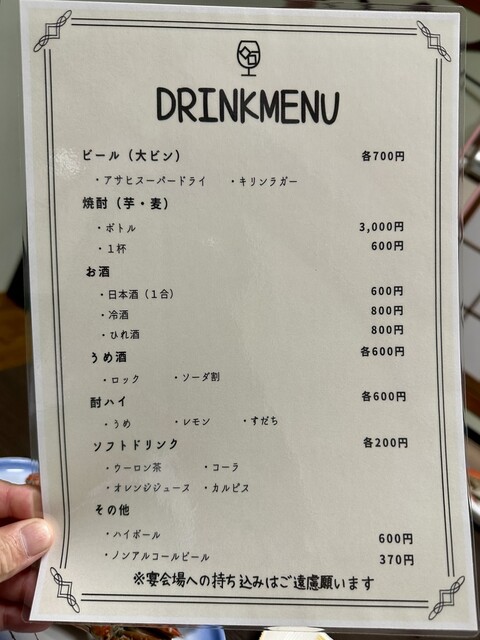 DRINKMENU
ビール（大ビン） 各700円
・アサヒスーパードライ ・キリンラガー
焼酎（芋・麦）
・ボトル 3,000円
・1杯 600円
お酒
・日本酒（1合） 600円
・冷酒 800円
・ひれ酒 800円
うめ酒 各600円
・ロック ・ソーダ割
酎ハイ 各600円
・うめ ・レモン ・すだち
ソフトドリンク 各200円
・ウーロン茶 ・コーラ
・オレンジジュース ・カルピス
その他
・ハイボール 600円
・ノンアルコールビール 370円
※宴会場への持ち込みはご遠慮願います